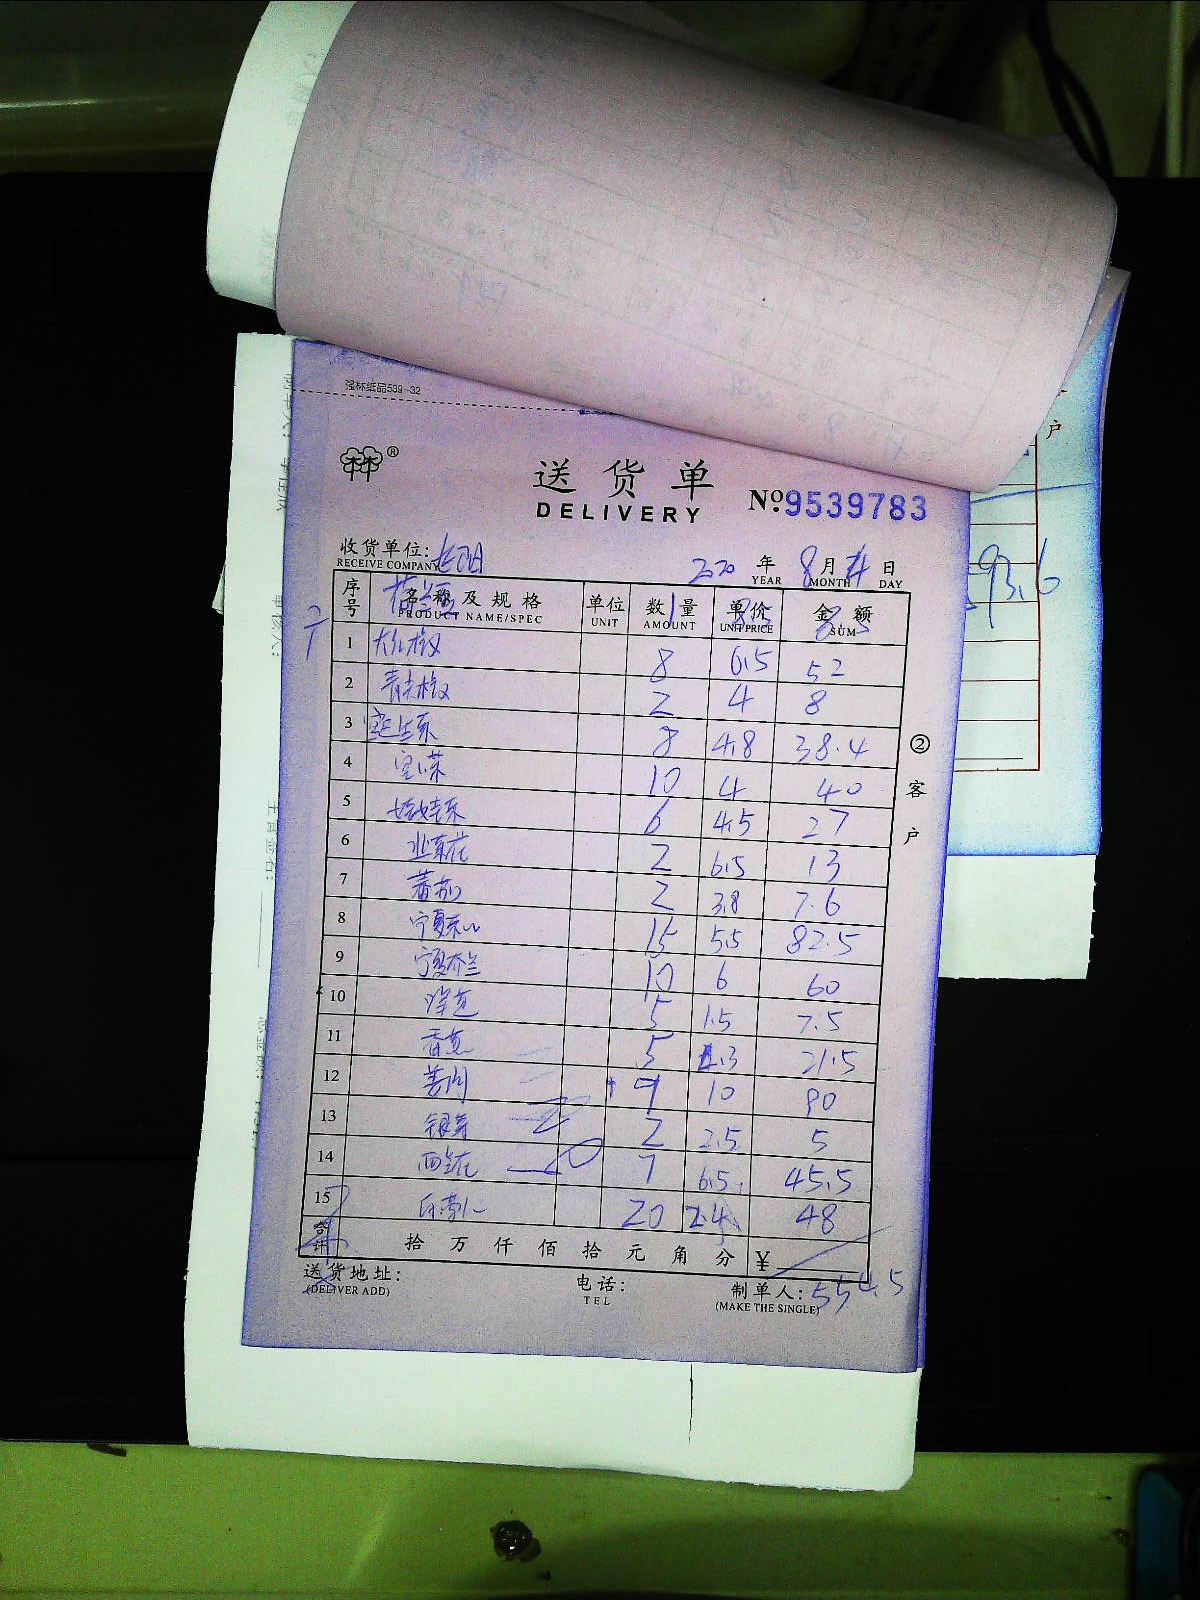 强林纸品539-32
送货单
DELIVERY
No 9539783
收货单位:
RECEIVE COMPANY
2020 年 8 月 4 日
YEAR MONTH DAY
93.6
户
序号 名称及规格 单位 数量 单价 金额
PRODUCT NAME/SPEC UNIT AMOUNT UNIT PRICE SUM
荷兰豆 1 8.5 8.5
1 大红椒 8 6.5 52
2 青尖椒 2 4 8
3 8 4.8 38.4
4 10 4 40
5 娃娃菜 6 4.5 27
6 韭菜花 2 6.5 13
7 蕃茄 2 3.8 7.6
8 宁夏菜心 15 5.5 82.5
9 宁夏芥兰 10 6 60
10 洋芫 5 1.5 7.5
11 5 4.3 21.5
12 姜肉 9 10 90
13 银芽 2 2.5 5
14 西兰花 7 6.5 45.5
15 20 2.4 48
合计 拾 万 仟 佰 拾 元 角 分 ¥
② 客户
送货地址:
(DELIVER ADD)
电话:
TEL
制单人:
(MAKE THE SINGLE)
554.5